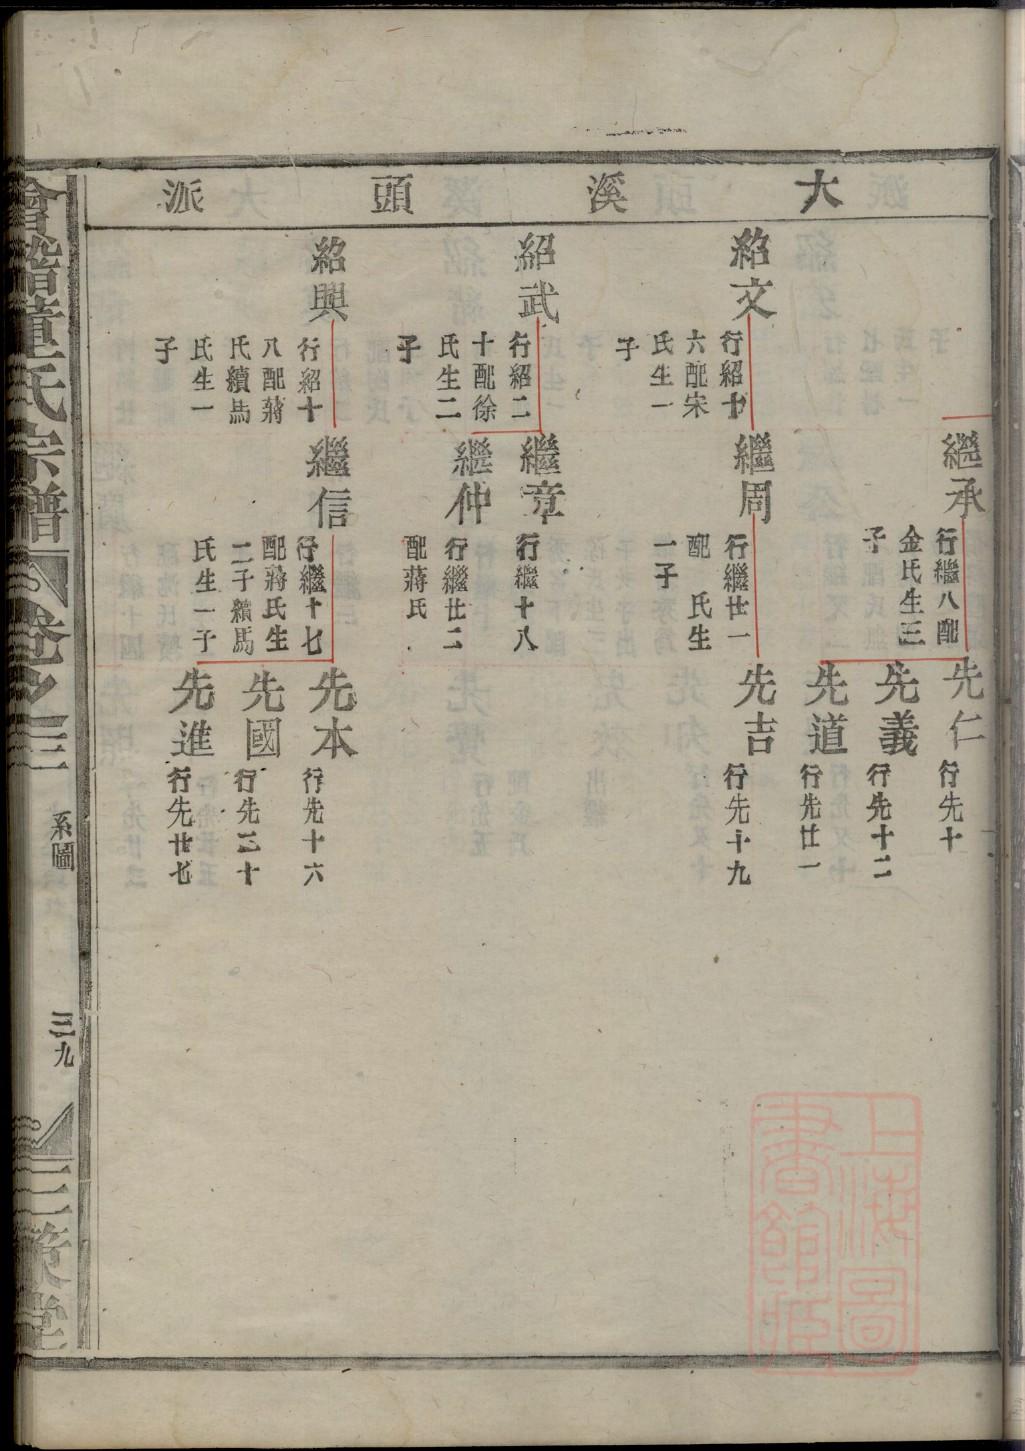 大溪頭派
繼承
行繼八配
金氏生三
子
先仁
行先十
先義
行先十二
先道
行先廿一
紹文
行紹十
六配宋
氏生一
子
繼周
行繼廿一
配　氏生
一子
先吉
行先十九
紹武
行紹二
十配徐
氏生二
子
繼章
行繼十八
繼仲
行繼廿二
配蔣氏
紹興
行紹十
八配蔣
氏續馬
氏生一
子
繼信
行繼十七
配蔣氏生
二子續馬
氏生一子
先本
行先十六
先國
行先三十
先進
行先廿七
會稽童氏宗譜
卷之三
系圖
三九
三策堂
上海圖
書館藏